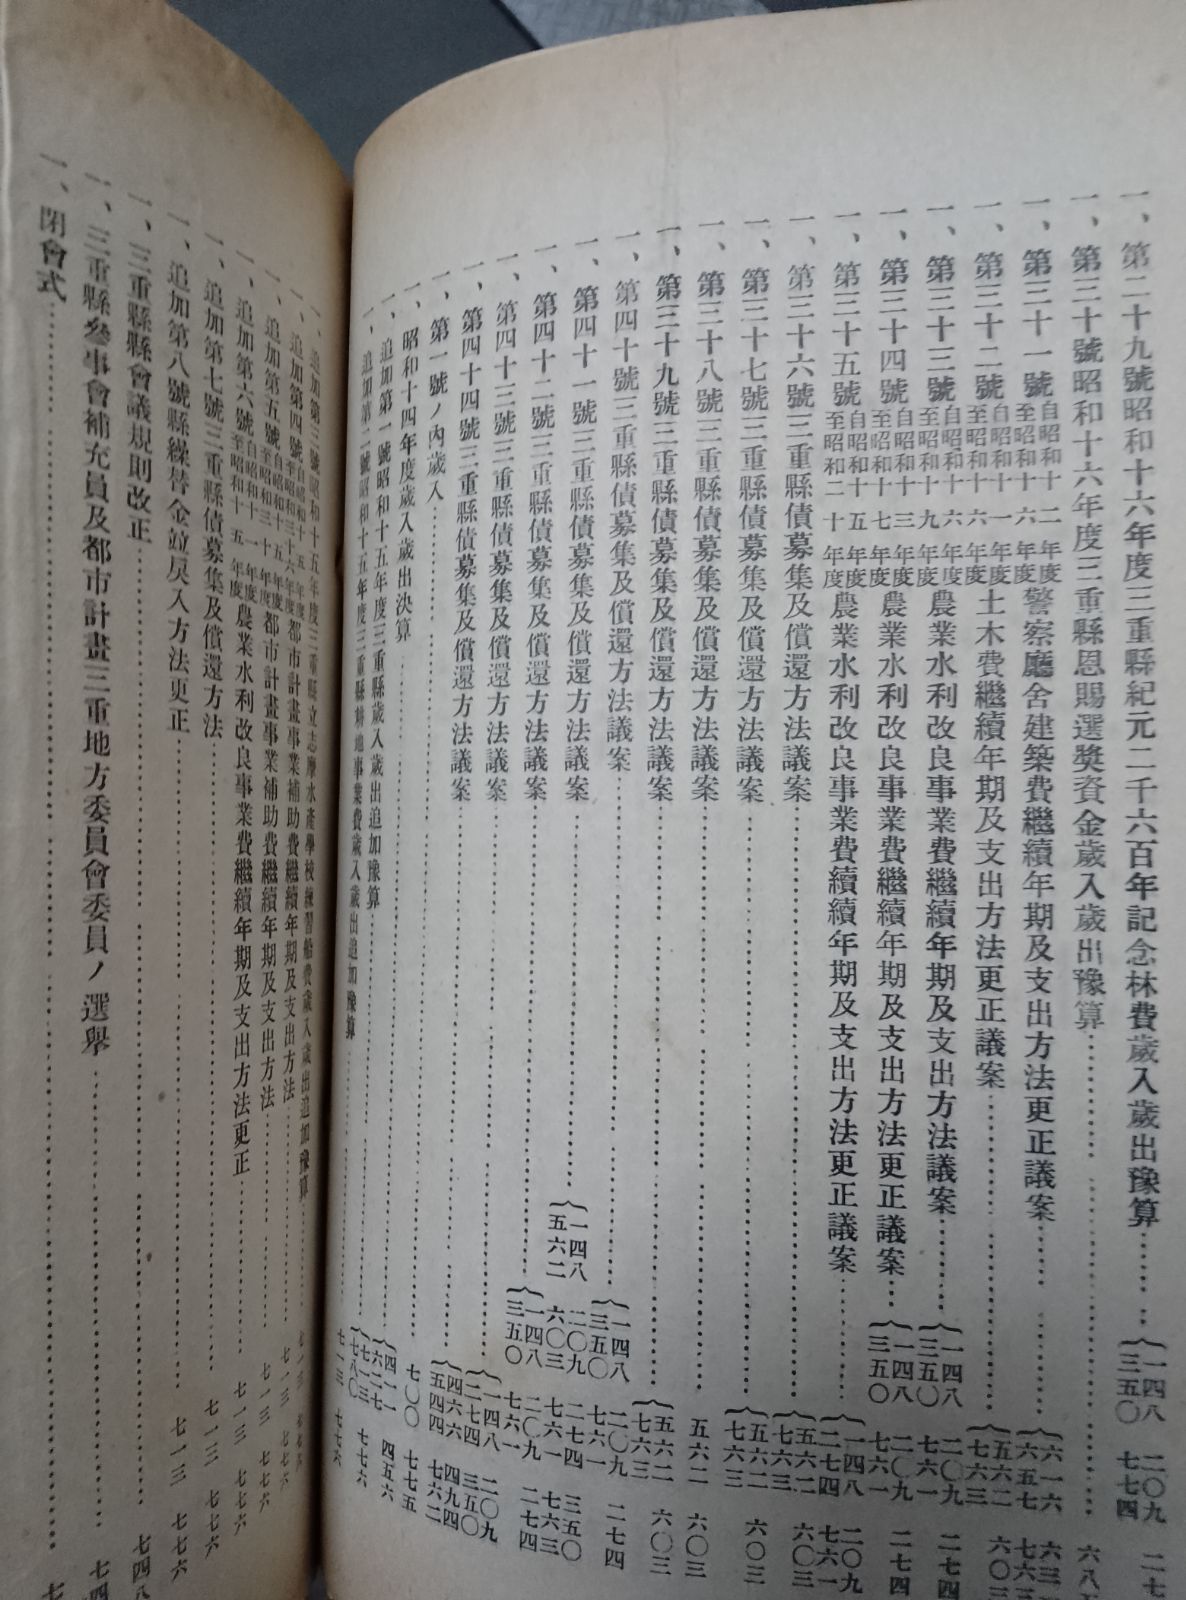 一、第二十九號昭和十六年度三重縣紀元二千六百年記念林費歲入歲出豫算…… {一四八 三五〇 二〇九 七七四
一、第三十號昭和十六年度三重縣恩賜選奬資金歲入歲出豫算……
一、第三十一號自昭和十二年度至昭和十六年度警察廳舍建築費繼續年期及支出方法更正議案…… {六一六 六五七
一、第三十二號自昭和十一年度至昭和十六年度土木費繼續年期及支出方法更正議案…… {五六二 七六三
一、第三十三號自昭和十六年度至昭和十九年度農業水利改良事業費繼續年期及支出方法議案…… {一四八 三五〇 二〇九 七六一 二七四
一、第三十四號自昭和十三年度至昭和十七年度農業水利改良事業費繼續年期及支出方法更正議案…… {一四八 三五〇 二〇九 七六一 二七四
一、第三十五號自昭和十五年度至昭和二十年度農業水利改良事業費續續年期及支出方法更正議案…… {一四八 二七四 二〇九 七六一
一、第三十六號三重縣債募集及償還方法議案…… {五六二 七六三 六〇三
一、第三十七號三重縣債募集及償還方法議案…… {五六二 七六三 六〇三
一、第三十八號三重縣債募集及償還方法議案…… 五六二 六〇三
一、第三十九號三重縣債募集及償還方法議案…… {五六二 七六三 六〇三
一、第四十號三重縣債募集及償還方法議案…… {一四八 三五〇 二〇九 七六一 二七四
一、第四十一號三重縣債募集及償還方法議案…… {一四八 五六二 二〇九 六〇三 二七四 七六一 三五〇 七六三
一、第四十二號三重縣債募集及償還方法議案…… {一四八 三五〇 二〇九 七六一 二七四
一、第四十三號三重縣債募集及償還方法議案…… {一四八 二七四 二〇九 三五〇
一、第四十四號三重縣債募集及償還方法議案…… {四六六 五四四 四九四 七六二
一、第一號ノ內歲入…… 七〇〇 七七五
一、昭和十四年度歲入歲出決算…… {四一一 六二七 四五六
一、追加第一號昭和十五年度三重縣歲入歲出追加豫算…… {七一三 七八〇 七七六
一、追加第二號昭和十五年度三重縣耕地事業費歲入歲出追加豫算…… 七一三 七七六
一、追加第三號昭和十五年度三重縣立志摩水產學校練習船費歲入歲出追加豫算…… 七一三 七七六
一、追加第四號自昭和十五年度至昭和三十六年度都市計畫事業補助費繼續年期及支出方法…… 七一三 七七六
一、追加第五號自昭和十五年度至昭和三十年度都市計畫事業補助費繼續年期及支出方法…… 七一三 七七六
一、追加第六號自昭和十一年度至昭和十五年度農業水利改良事業費繼續年期及支出方法更正…… 七一三 七七六
一、追加第七號三重縣債募集及償還方法…… 七一三 七七六
一、追加第八號縣繰替金竝戾入方法更正…… 七一三 七七六
一、三重縣縣會議規則改正…… 七四八
一、三重縣參事會補充員及都市計畫三重地方委員會委員ノ選擧……
一、閉會式……